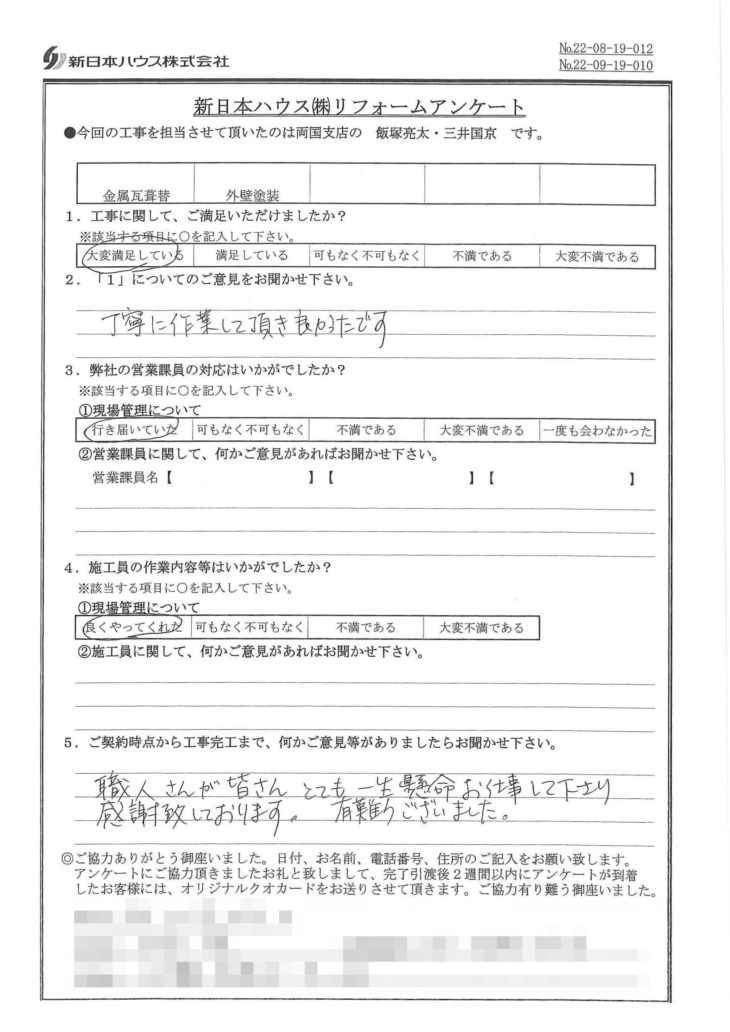 新日本ハウス株式会社
№22-08-19-012
№22-09-19-010
新日本ハウス㈱リフォームアンケート
●今回の工事を担当させて頂いたのは両国支店の 飯塚亮太・三井国京 です。
金属瓦葺替 外壁塗装
1．工事に関して、ご満足いただけましたか？
※該当する項目に○を記入して下さい。
大変満足している 満足している 可もなく不可もなく 不満である 大変不満である
2．「1」についてのご意見をお聞かせ下さい。
丁寧に作業して頂き良かったです
3．弊社の営業課員の対応はいかがでしたか？
※該当する項目に○を記入して下さい。
①現場管理について
行き届いていた 可もなく不可もなく 不満である 大変不満である 一度も会わなかった
②営業課員に関して、何かご意見があればお聞かせ下さい。
営業課員名【 】【 】【 】
4．施工員の作業内容等はいかがでしたか？
※該当する項目に○を記入して下さい。
①現場管理について
良くやってくれた 可もなく不可もなく 不満である 大変不満である
②施工員に関して、何かご意見があればお聞かせ下さい。
5．ご契約時点から工事完工まで、何かご意見等がありましたらお聞かせ下さい。
職人さんが皆さん とても 一生懸命お仕事して下さり
感謝致しております。 有難うございました。
◎ご協力ありがとう御座いました。日付、お名前、電話番号、住所のご記入をお願い致します。
アンケートにご協力頂きましたお礼と致しまして、完了引渡後２週間以内にアンケートが到着
したお客様には、オリジナルクオカードをお送りさせて頂きます。ご協力有り難う御座いました。